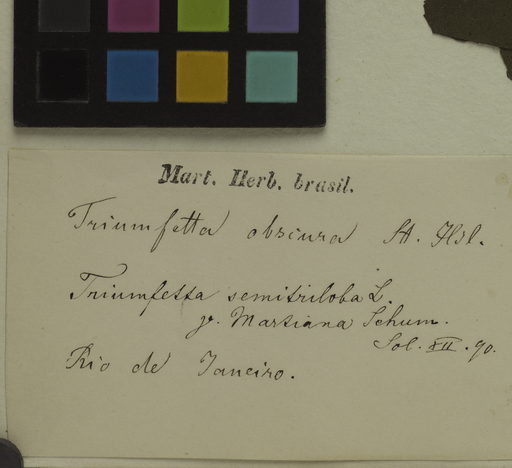 Mart. Herb. brasil.
Triumfetta obscura St. Hil.
Triumfetta semitriloba L.
γ. Martiana Schum.
Sol. XII. 90.
Rio de Janeiro.